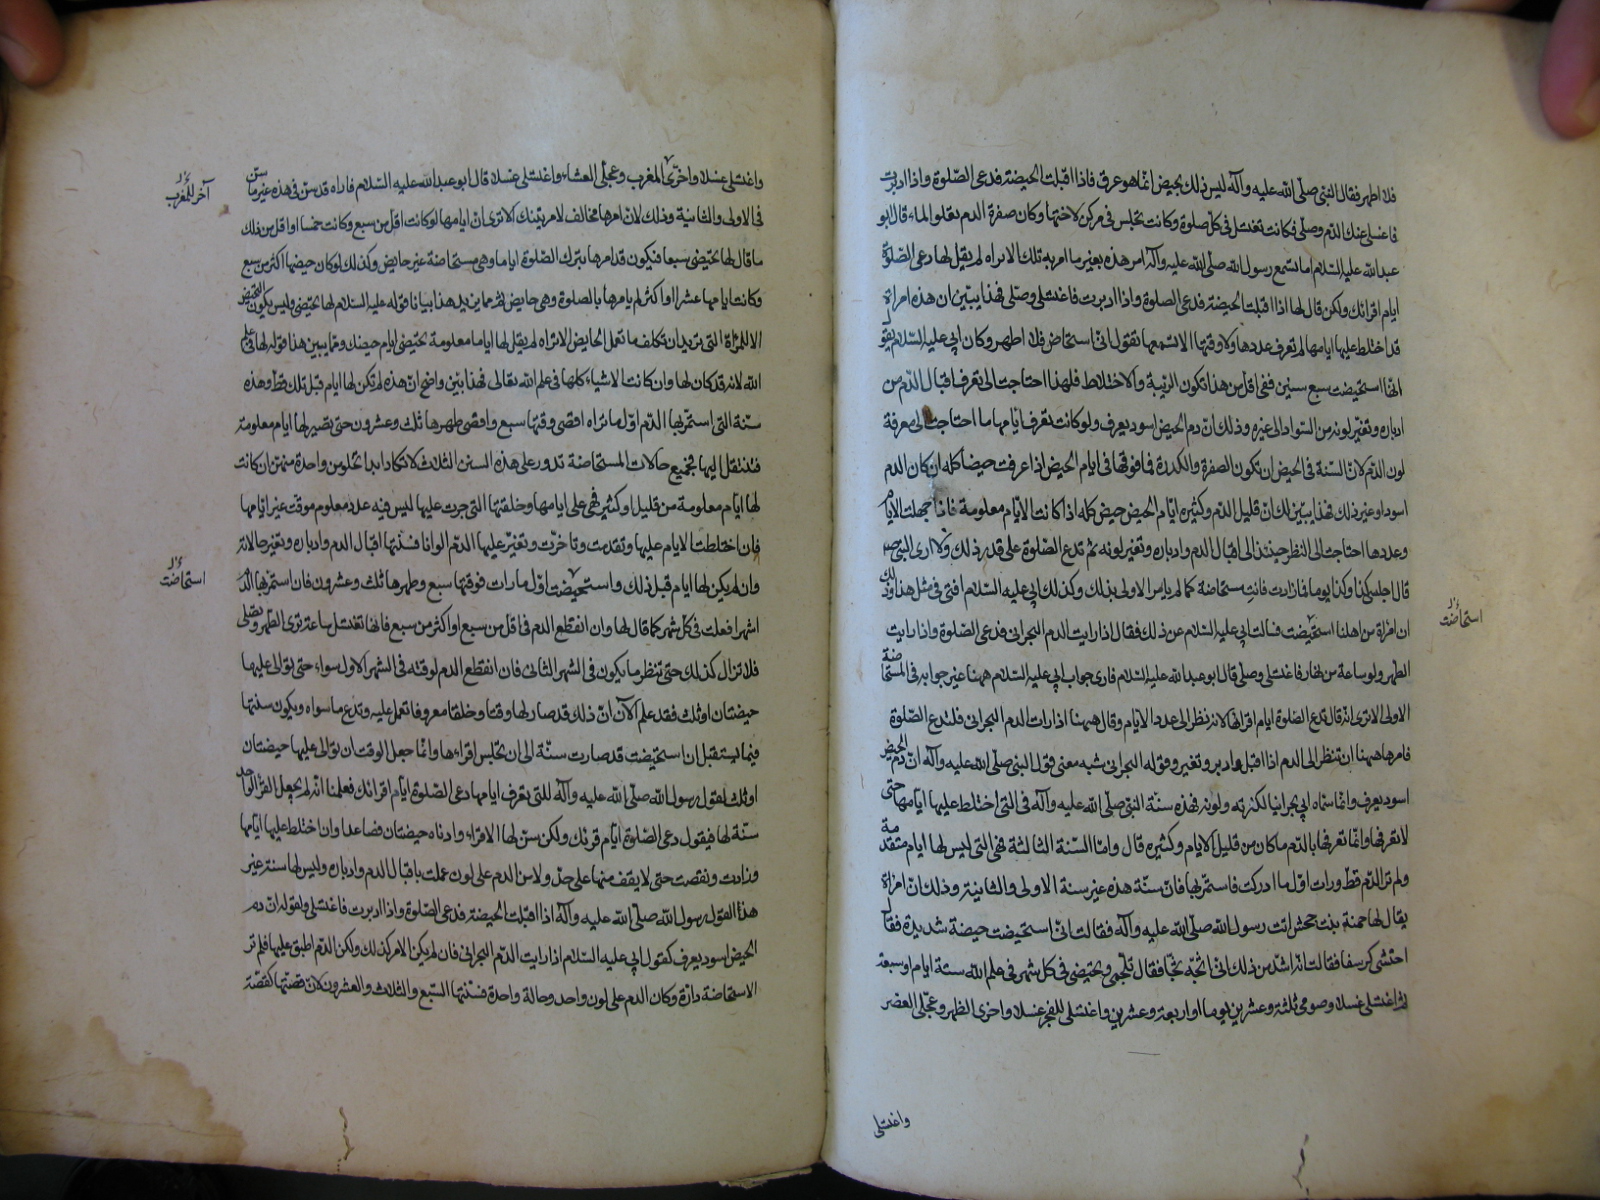 فلا اطهر فقال النبى صلّى الله عليه وآله ليس ذلك بحيض انّما هو عرق فاذا اقبلت الحيضة فدعى الصّلوة واذا ادبرت
فاغسلى عنك الدّم وصلّى فكانت تغتسل فى كلّ صلوة وكانت تجلس فى مركن لاختها وكان صفرة الدم يعلوا الماء قال ابو
عبدالله عليه السّلام اما تسمع رسول الله صلّى الله عليه وآله امر هذه بغير ما امر به تلك الا تراه لم يقل لها دعى الصّلوة
ايام اقرائك ولكن قال لها اذا اقبلت الحيضة فدعى الصلوة واذا ادبرت فاغتسلى وصلّى فهذا يبيّن ان هذه امراة
قد اختلط عليها ايامها لم تعرف عددها ولا وقتها الا تسمعها تقول انّى استحاض فلا اطهر وكان ابى عليه السّلام يقول
انّها استحيضت سبع سنين ففى اقل من هذا تكون الريبة والاختلاط فلهذا احتاجت الى تعرف اقبال الدّم من
ادباره وتغيّر لونه من السّواد الى غيره وذلك انّ دم الحيض اسود يعرف ولو كانت تعرف ايّامها ما احتاجت الى معرفة
لون الدّم لانّ السّنة فى الحيض ان تكون الصفرة والكدرة فما فوقها فى ايام الحيض اذا عرفت حيضا كله ان كان الدم
اسود او غير ذلك فهذا يبيّن لك انّ قليل الدّم وكثيره ايّام الحيض حيض كله اذا كانت الايّام معلومة فاذا جهلت الايام
وعددها احتاجت الى النظر حينئذ الى اقبال الدم وادباره وتغيّر لونه ثم تدع الصّلوة على قدر ذلك ولا ارى النبى ص
قال اجلسى كذا وكذا يوما فما زادت فانت مستحاضة كما لم يامر الاولى بذلك وكذلك ابى عليه السّلام افتى فى مثل هذا وذلك
ان امراة من اهلنا استحيضت فسالت ابى عليه السّلام عن ذلك فقال اذا رايت الدم البحرانى فدعى الصّلوة واذا رايت
استحاضت
الطهر ولو ساعة من نهار فاغتسلى وصلّى قال ابو عبدالله عليه السّلام فارى جواب ابى عليه السّلام ههنا غير جوابه فى المستحاضة
الاولى الا ترى انّه قال تدع الصّلوة ايام اقرائها لانه نظر الى عدد الايام وقال ههنا اذا رات الدم البحرانى فلتدع الصّلوة
فامرها ههنا ان تنظر الى الدم اذا اقبل وادبر وتغير وقوله البحرانى شبه معنى قول النبى صلّى الله عليه وآله انّ دم الحيض
اسود يعرف وانّما سمّاه ابى بحرانيا لكثرته ولونه فهذه سنّة النبى صلّى الله عليه وآله فى التى اختلط عليها ايّامها حتى
لا تعرفها وانّما تعرفها بالدّم ما كان من قليل الايام وكثيره قال وامّا السّنة الثالثة فهى التى ليس لها ايام متقدمة
ولم تر الدّم قطّ ورات اوّل ما ادركت فاستمرّ بها فانّ سنّة هذه غير سنة الاولى والثانية وذلك انّ امراة
يقال لها حمنة بنت جحش اتت رسول الله صلّى الله عليه وآله فقالت انّى استحيضت حيضة شديدة فقال
احتشى كرسفا فقالت انّه اشدّ من ذلك انّى اثجّه ثجّا فقال تلجّمى وتحيّضى فى كل شهر فى علم الله ستة ايام او سبعة
ثم اغتسلى غسلا وصومى ثلثة وعشرين يوما او اربعة وعشرين واغتسلى للفجر غسلا واخرى الظهر وعجّلى العصر
واغتسلى
واغتسلى غسلا واخّرى المغرب وعجّلى العشاء واغتسلى غسلا قال ابو عبدالله عليه السّلام فاراه قد سنّ فى هذه غير ما سنّ
آخر للمغرب
فى الاولى والثانية وذلك لانّ امرها مخالف لامر تينك الا ترى انّ ايامها لو كانت اقل من سبع وكانت خمسا او اقل من ذلك
ما قال لها تحيّضى سبعا فيكون قد امرها بترك الصّلوة اياما وهى مستحاضة غير حايض وكذلك لو كان حيضها اكثر من سبع
وكانت ايامها عشرا او اكثر لم يامرها بالصلوة وهى حايض ثم ممّا يزيد هذا بيانا قوله عليه السّلام لها تحيّضى وليس يكون التحيّض
الا للمراة التى تريد ان تكلف ما تعمل الحايض الا تراه لم يقل لها اياما معلومة تحيّضى ايام حيضك وممّا يبين هذا قوله لها فى علم
الله لانه قد كان لها وان كانت الاشياء كلّها فى علم الله تعالى فهذا بيّن واضح انّ هذه لم تكن لها ايام قبل تلك قطّ وهذه
سنّة التى استمرّ بها الدّم اوّل ما تراه اقصى وقتها سبع واقصى طهرها ثلث وعشرون حتى يصير لها ايام معلومة
فتنتقل اليها فجميع حالات المستحاضة تدور على هذه السنن الثلاث لا تكاد ابدا تخلو من واحدة منهنّ ان كانت
لها ايّام معلومة من قليل او كثير فهى على ايامها وخلقتها التى جرت عليها ليس فيه عدد معلوم موقت غير ايّامها
فان اختلطت الايام عليها وتقدمت وتاخرت وتغيّر عليها الدّم الوانا فسنّتها اقبال الدم وادباره وتغيّر حالاته
وان لم يكن لها ايام قبل ذلك واستحيضت اوّل ما رات فوقتها سبع وطهرها ثلث وعشرون فان استمرّ بها الدّم
استحاضت
اشهرا فعلت فى كلّ شهر كما قال لها وان انقطع الدم فى اقل من سبع او اكثر من سبع فانّها تغتسل ساعة ترى الطهر وتصلّى
فلا تزال كذلك حتى تنظر ما يكون فى الشهر الثانى فان انقطع الدم لوقته فى الشهر الاول سواء حتى توالى عليها
حيضتان او ثلث فقد علم الآن انّ ذلك قد صار لها وقتا وخلقا معروفا تعمل عليه وتدع ما سواه ويكون سنتها
فيما يستقبل ان استحيضت قد صارت سنّة الى ان تجلس اقراءها وانّما جعل الوقت ان توالى عليها حيضتان
او ثلث لقول رسول الله صلّى الله عليه وآله للتى تعرف ايامها دعى الصّلوة ايّام اقرائك فعلمنا انّه لم يجعل القرء الواحد
سنّة لها فيقول دعى الصّلوة ايّام قرئك ولكن سنّ لها الاقراء وادناه حيضتان فصاعدا وان اختلط عليها ايّامها
وزادت ونقصت حتى لا يقف منها على حدّ ولا من الدم على لون عملت باقبال الدم وادباره وليس لها سنة غير
هذا لقول رسول الله صلّى الله عليه وآله اذا اقبلت الحيضة فدعى الصّلوة واذا ادبرت فاغتسلى ولقوله انّ دم
الحيض اسود يعرف كقول ابى عليه السّلام اذا رايت الدّم البحرانى فان لم يكن الامر كذلك ولكن الدّم اطبق عليها فلم تر
الاستحاضة دارّة وكان الدم على لون واحد وحالة واحدة فسنّتها السّبع والثلاث والعشرون لانّ قصّتها كقصّة